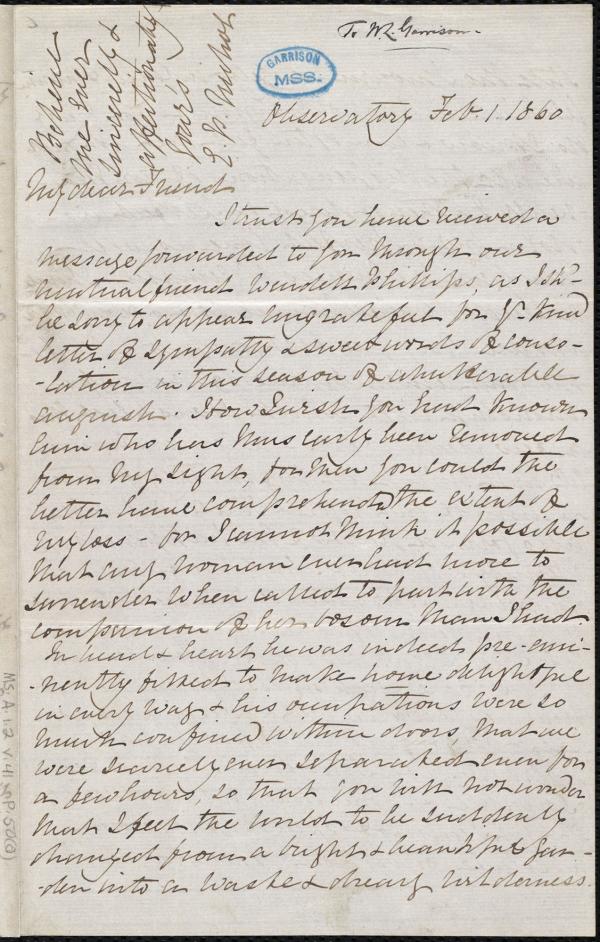 To W. L. Garrison.
GARRISON
MSS.
Observatory Feb. 1. 1860
My dear Friend
I trust you have received a
message forwarded to you through our
mutual friend Wendell Phillips, as I shd.
be sorry to appear ungrateful for yr. kind
letter of sympathy & sweet words of conso-
-lation in this season of unutterable
anguish. How I wish you had known
him who has thus early been removed
from my sight, for then you could the
better have comprehended the extent of
my loss - for I cannot think it possible
that any woman ever had more to
surrender when called to part with the
companion of her bosom than I had.
In head & heart he was indeed pre-emi-
-nently fitted to make home delightful
in every way & his occupations were so
much confined within doors, that we
were scarcely ever separated even for
a few hours, so that you will not wonder
that I feel the world to be suddenly
changed from a bright & beautiful gar-
-den into a waste & dreary wilderness.
Believe
me ever
sincerely &
affectionately
Your's
E. P. Nichol
Ms. A. 1. 2 v. 41